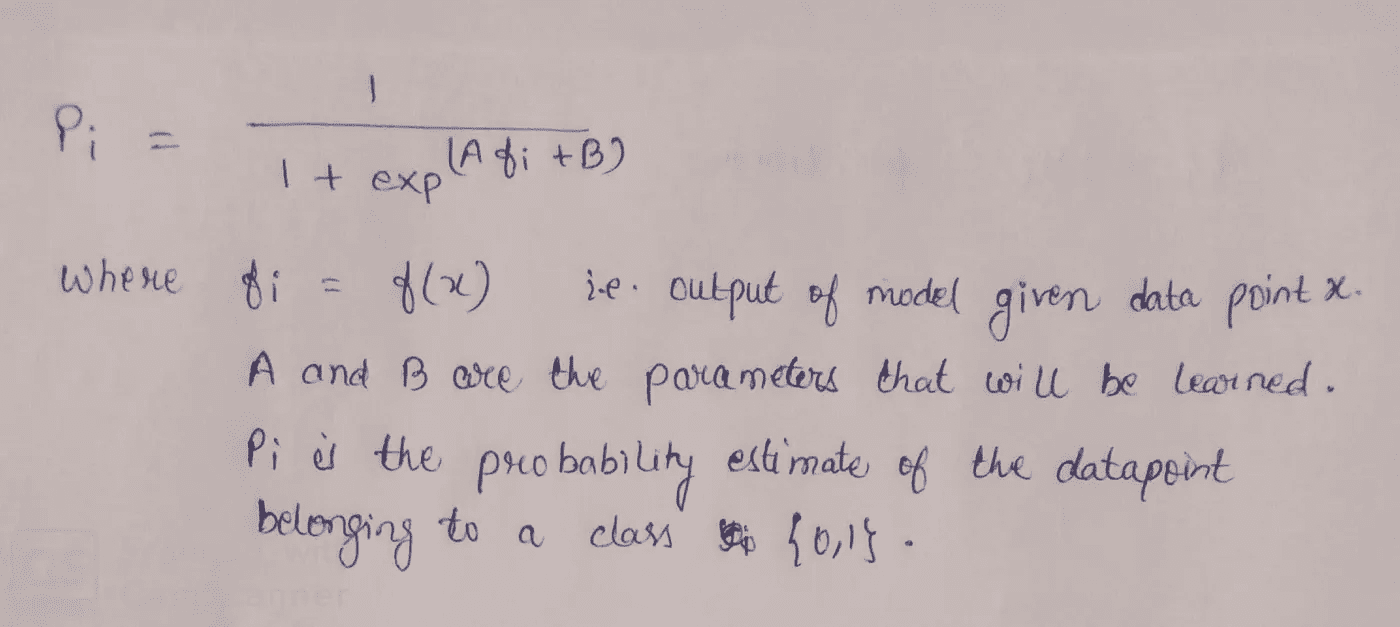 Pi = 1 / 1 + exp^(A fi + B)
where fi = f(x) i.e. output of model given data point x.
A and B are the parameters that will be learned.
Pi is the probability estimate of the datapoint
belonging to a class {0,1}.